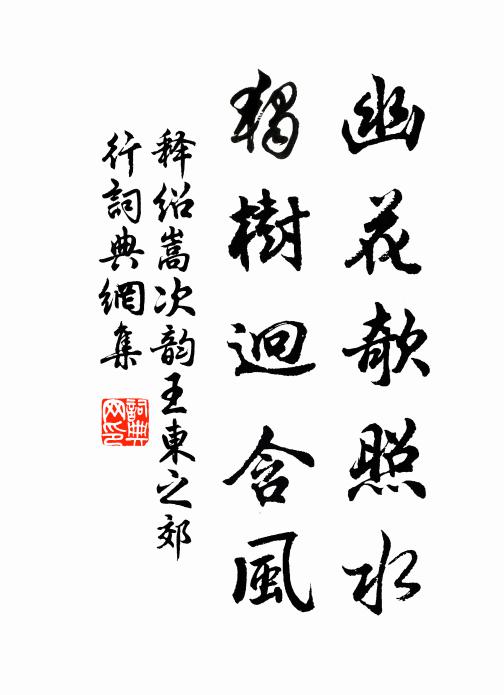 幽花欹照水
獨樹迥含風
释绍嵩次韵王東之郊
行詞典網集
詞典網印